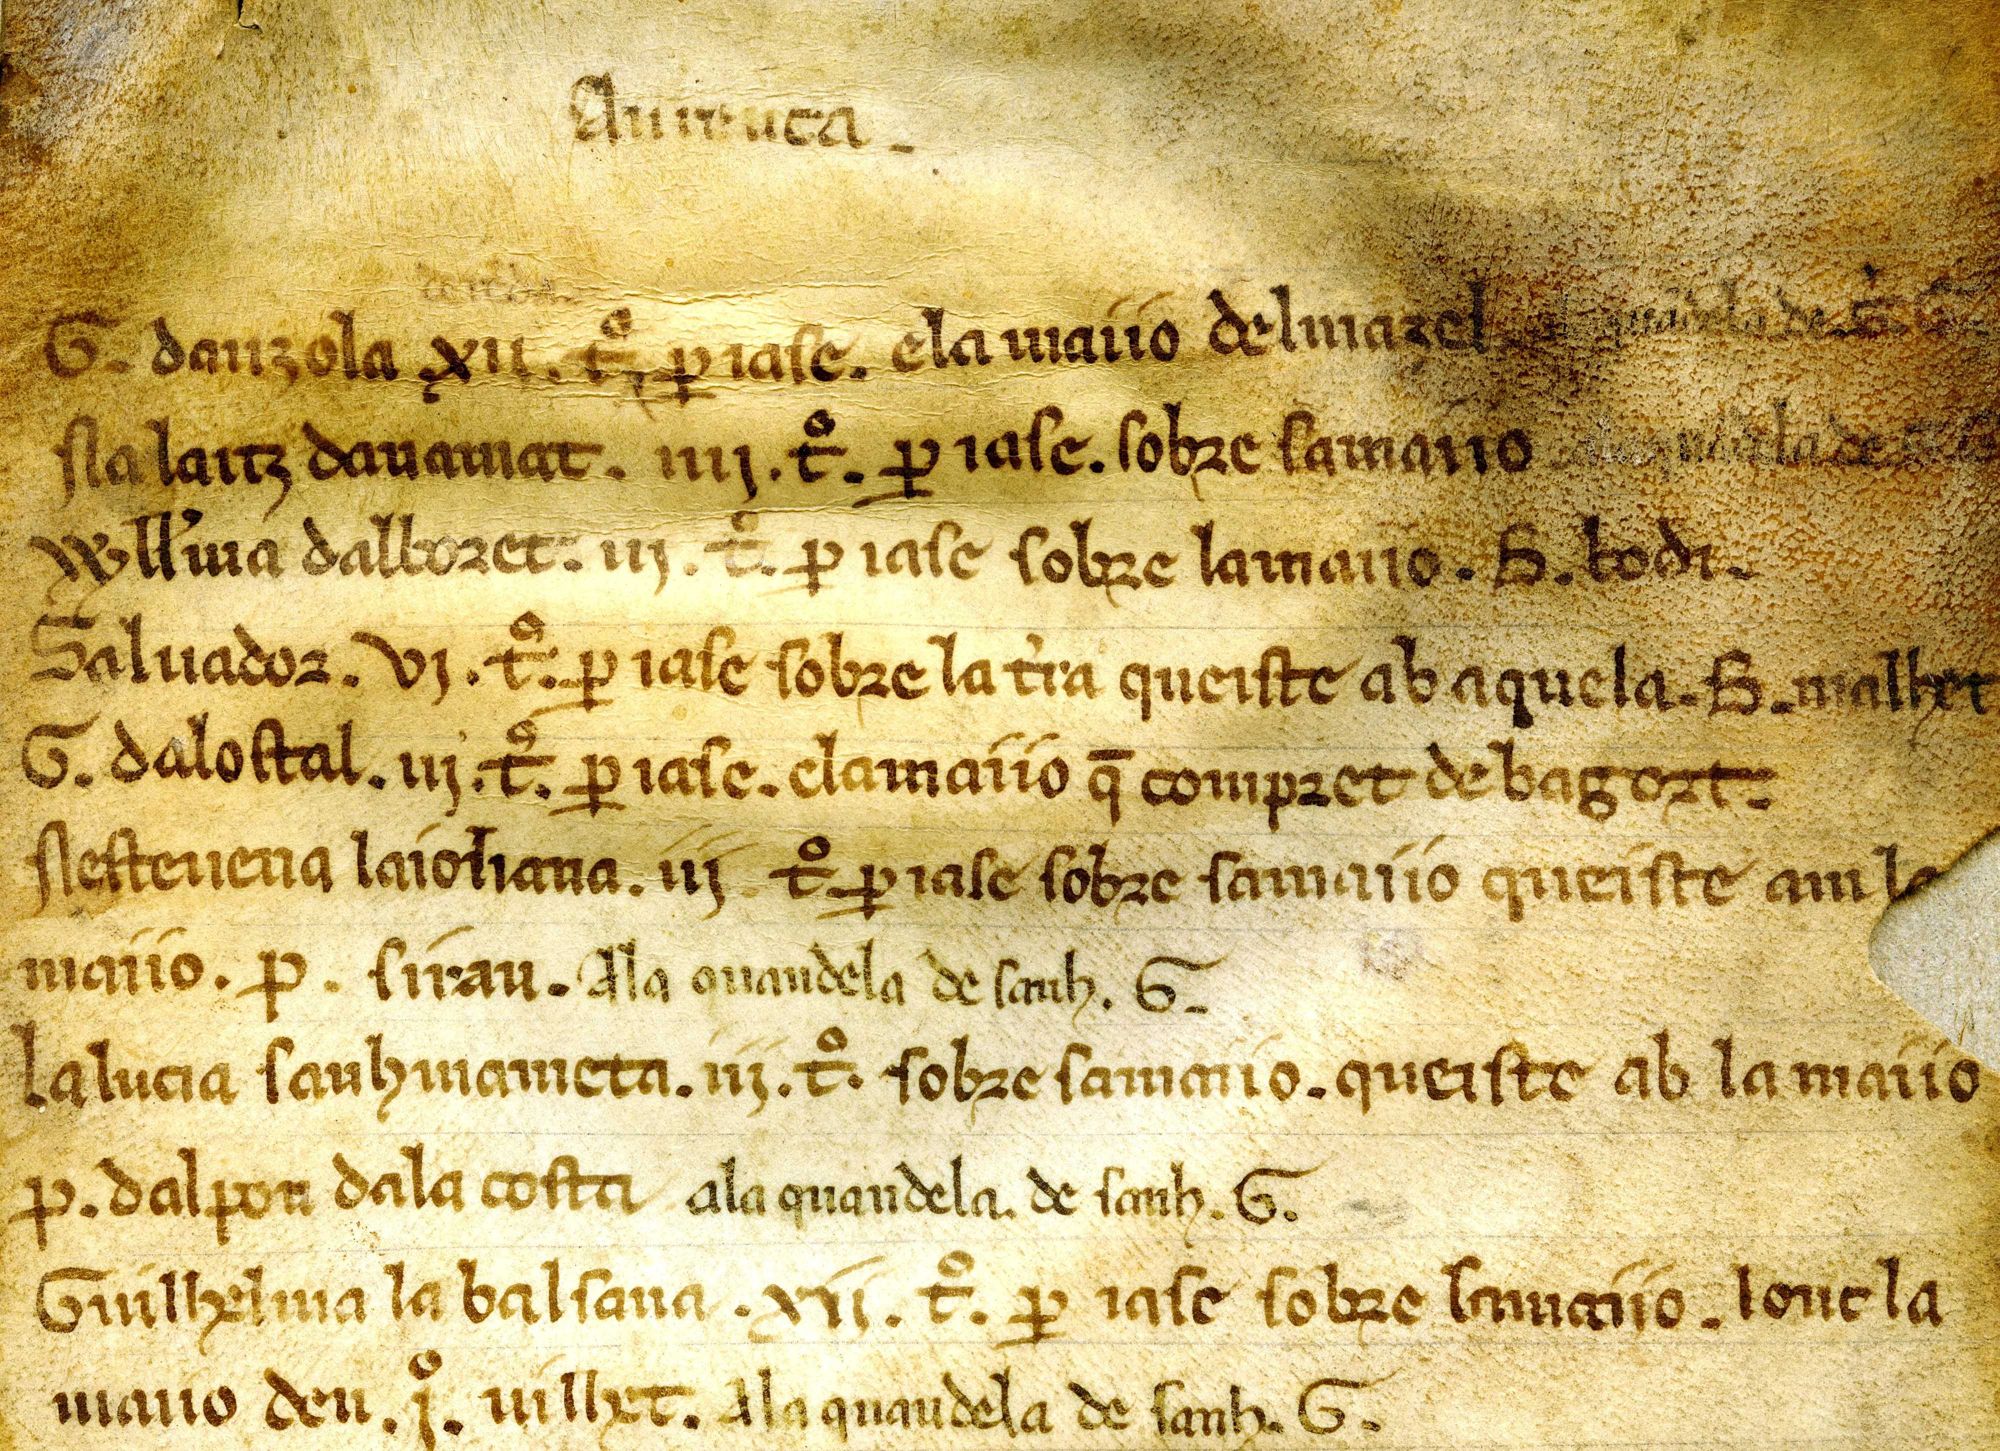 G. danzola xii. tꝰ. ꝑ iase. ela maiio delmazel
Na laitz dauamat. iiij. tꝰ. ꝑ iase. sobre samaiio
Wll'ma dalboret. iij. tꝰ. ꝑ iase sobre lamaiio. S. bodi.
Saluador. vj. tꝰ. ꝑ iase sobre la t'ra queiste ab aquela. S. malhet
G. dalostal. iij. tꝰ. ꝑ iase. elamaiio q̄ compret de bagort.
Nesteuena laioliana. iij tꝰ. ꝑ iase sobre samaiio queiste am la
maiio. p. sirau. Ala quandela de sanh. G.
La lucia sanhmameta. iij. tꝰ. sobre samaiio. queiste ab la maiio
p. dalpon dala costa ala quandela. de sanh. G.
Guilhelma la balsana. xij. tꝰ. ꝑ iase sobre lamaiio. lonc la
maiio den. jꝰ. uilhet. Ala quandela de sanh. G.